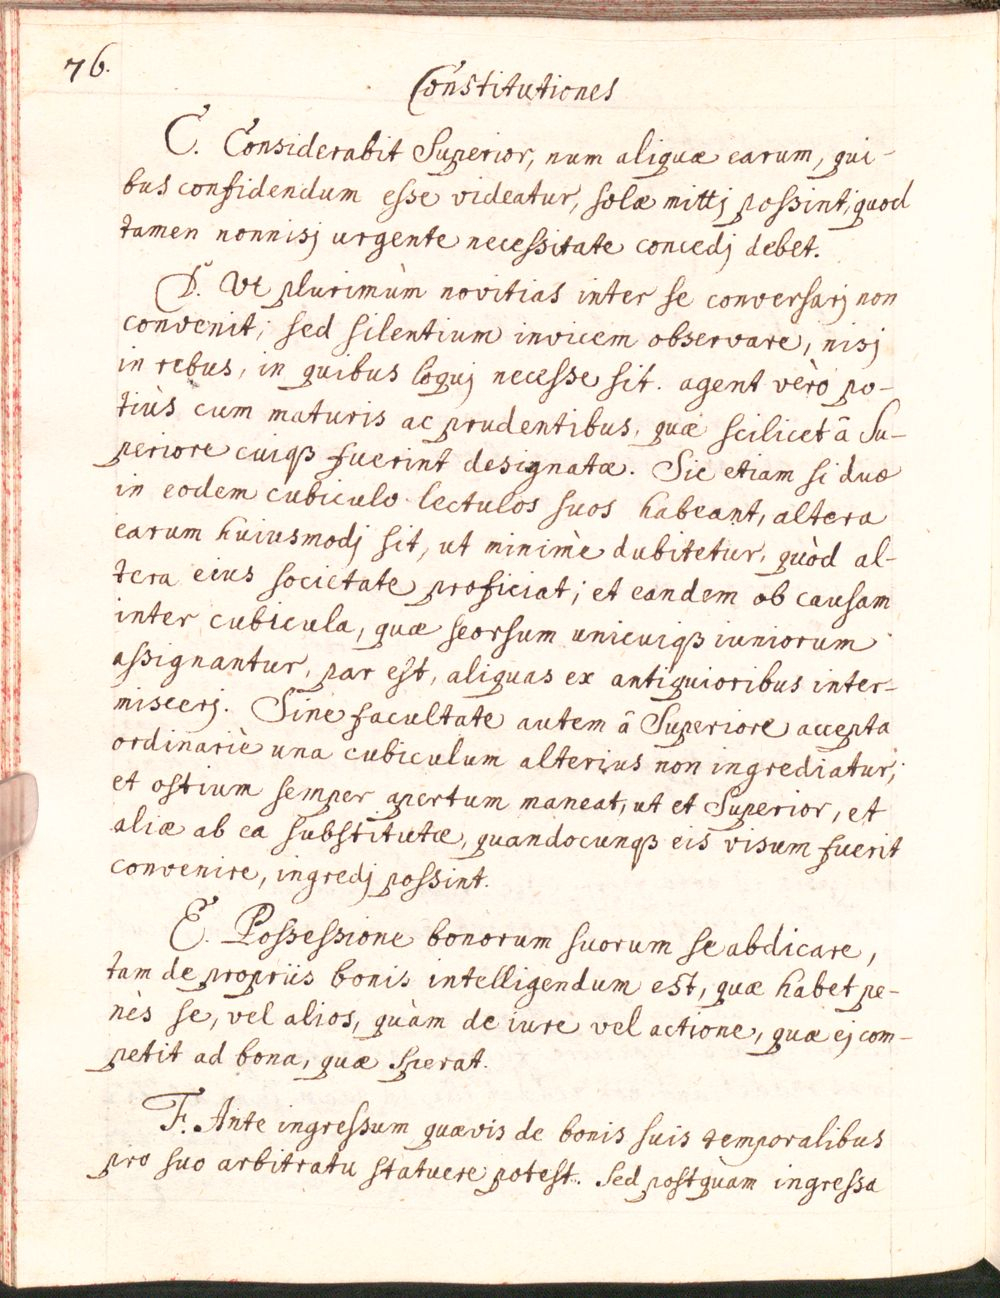 76.
Constitutiones
C. Considerabit Superior, num aliquæ earum, qui-
bus confidendum esse videatur, solæ mittj possint; quod
tamen nonnisj urgente necessitate concedj debet.
D. Ut plurimùm novitias inter se conversarj non
convenit; sed silentium invicem observare, nisj
in rebus, in quibus loquj necesse sit. agent verò po-
tiùs cum maturis ac prudentibus, quæ scilicet â Su-
periore cuiqꝫ fuerint designatæ. Sic etiam si duæ
in eodem cubiculo lectulos suos habeant, altera
earum huiusmodj sit, ut minimè dubitetur, quòd al-
tera eius societate proficiat; et eandem ob causam
inter cubicula, quæ seorsum unicuiqꝫ iuniorum
assignantur, par est, aliquas ex antiquioribus inter-
miscerj. Sine facultate autem â Superiore accepta
ordinariè una cubiculum alterius non ingrediatur;
et ostium semper apertum maneat, ut et Superior, et
aliæ ab ea substitutæ, quandocunqꝫ eis visum fuerit
convenire, ingredj possint.
E. Possessione bonorum suorum se abdicare,
tam de propriis bonis intelligendum est, quæ habet pe-
nès se, vel alios, quàm de iure vel actione, quæ ej com-
petit ad bona, quæ sperat.
F. Ante ingressum quævis de bonis suis temporalibus
pro suo arbitratu statuere potest. Sed postquam ingressa